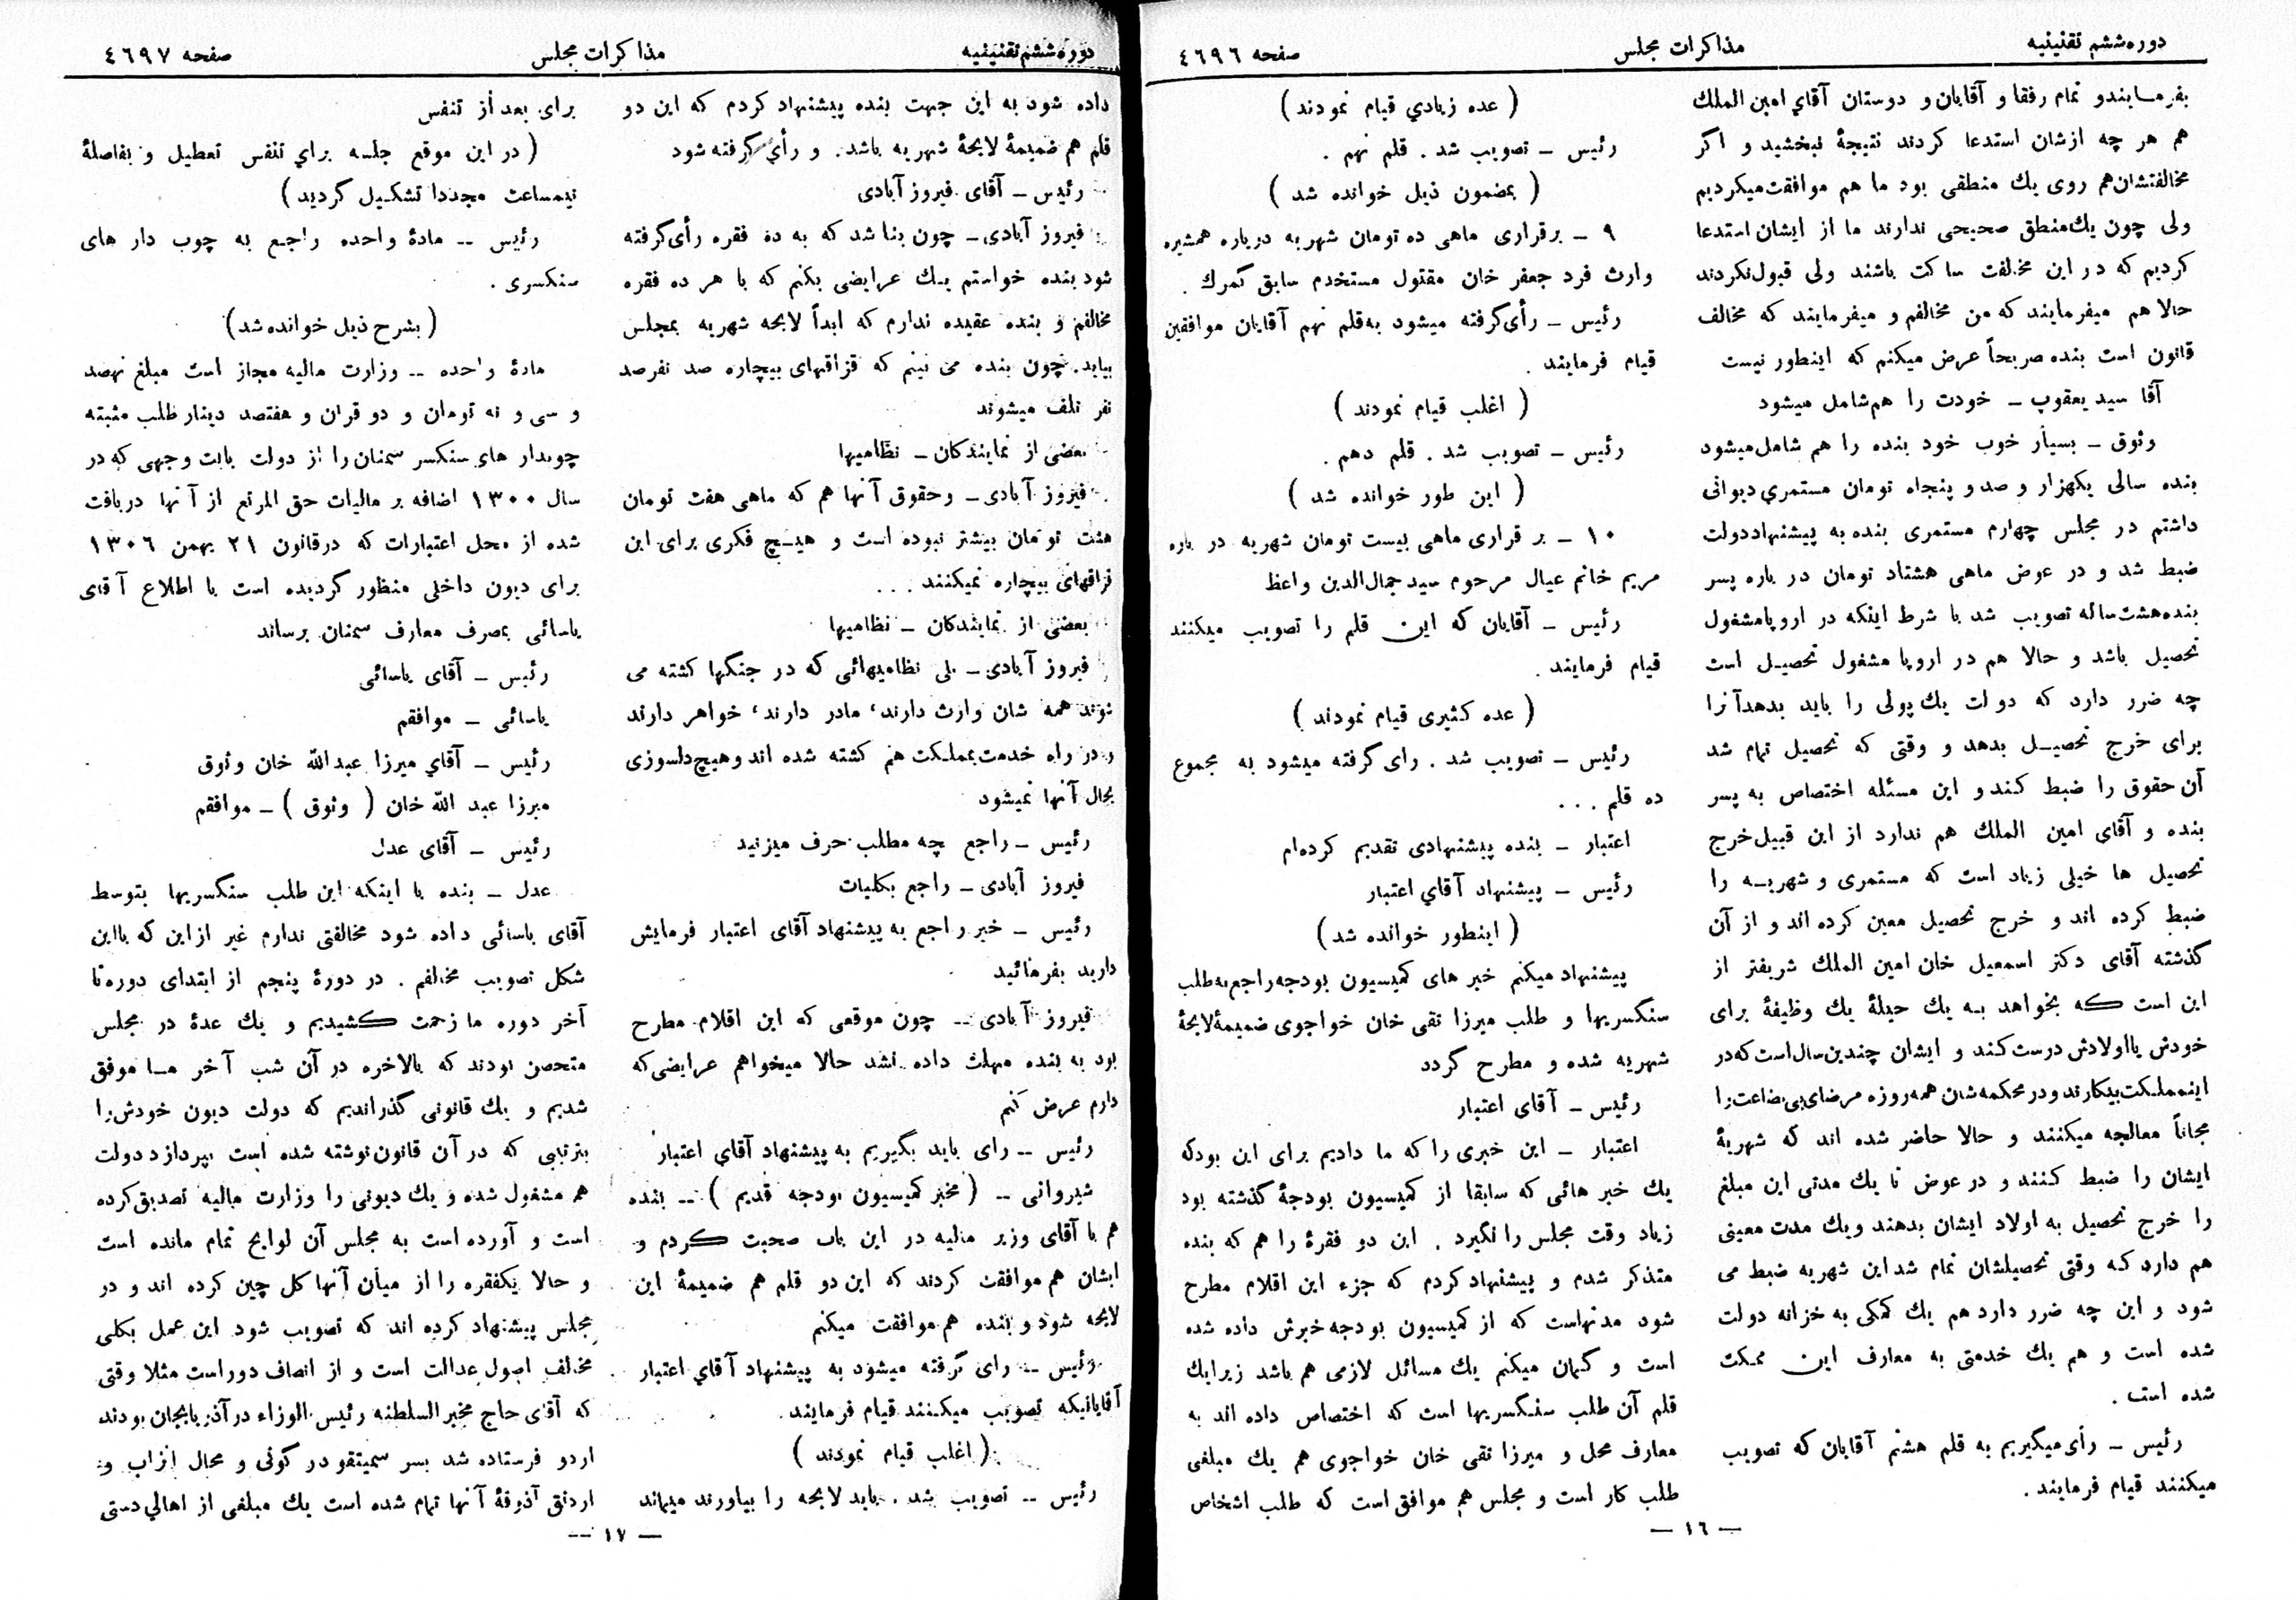 دوره ششم تقنینیه
مذاکرات مجلس
صفحه ٤٦٩٦
بفرمـایندو تمام رفقا و آقایان و دوستان آقاي امین الملك
هم هر چه ازشان استدعا کردند نتیجهٔ نبخشید و اگر
مخالفتشان‌هم روی یك منطقی بود ما هم موافقت‌میکردیم
ولی چون یك‌منطق صحیحی ندارند ما از ایشان استدعا
کردیم که در این مخالفت ساکت باشند ولی قبول‌نکردند
حالا هم میفرمایند که من مخالفم و میفرمایند که مخالف
قانون است بنده صریحاً عرض میکنم که اینطور نیست
آقا سید یعقوب ـ خودت را هم‌شامل میشود
وثوق ـ بسیار خوب خود بنده را هم شامل‌میشود
بنده سالی یکهزار و صد و پنجاه تومان مستمری دیوانی
داشتم در مجلس چهارم مستمری بنده به پیشنهاددولت
ضبط شد و در عوض ماهی هشتاد تومان در باره پسر
بنده‌هشت‌ساله تصویب شد با شرط اینکه در اروپا‌مشغول
تحصیل باشد و حالا هم در اروپا مشغول تحصیـل است
چه ضرر دارد که دولت یك‌پولی را باید بدهدآنرا
برای خرج تحصیـل بدهد و وقتی که تحصیل تمام شد
آن‌حقوق را ضبط کـنند و این مسئله اختصاص به پسر
بنده و آقای امین الملك هم ندارد از این قبیل‌خرج
تحصیل ها خیلی زیاد است که مستمری و شهریـه را
ضبط کرده اند و خرج تحصیل معین کرده اند و از آن
گذشته آقای دکتر اسمعیل خان امین الملك شریفتر از
این است که بخواهد بـه یك حیلهٔ یك وظیفهٔ برای
خودش یااولادش درست‌کـند و ایشان چندین‌سال‌است‌که‌در
اینمملـکت‌بیکارند و در محکمه‌شان همه‌روزه مرضای‌بی‌بضاعت‌را
مجاناً معالجه میکـنند و حالا حاضر شده اند که شهریهٔ
ایشان را ضبط کـنند و در عوض تا یك مدتی این مبلغ
را خرج تحصیل به اولاد ایشان بدهند ویك مدت معینی
هم دارد که وقتی تحصیلشان تمام شد این شهریه ضبط می
شود و این چه ضرر دارد هم یك کمکی به خزانه دولت
شده است و هم یك خدمتی به معارف این مملکت
شده است .
رئیس ـ رأی‌میگیریم به قلم هشتم آقایان که تصویب
میکـنند قیام فرمایند .
( عده زیادي قیام نمودند )
رئیس ـ تصویب شد . قلم نهم .
( بمضمون ذیل خوانده شد )
۹ ـ برقراری ماهی ده تومان شهریه درباره همشیره
وارث فرد جعفر خان مقتول مستخدم سابق گمرك .
رئیس ـ رأی‌گرفته میشود به‌قلم نهم آقایان موافقین
قیام فرمایند .
( اغلب قیام نمودند )
رئیس ـ تصویب شد . قلم دهم .
( این طور خوانده شد )
۱۰ ـ بر قراری ماهی بیست تومان شهریه در باره
مریم خانم عیال مرحوم سید جمال‌الدین واعظ
رئیس ـ آقایان که این قلم را تصویب میکنند
قیام فرمایند .
( عده کثیری قیام نمودند )
رئیس ـ تصویب شد . رای گرفته میشود به مجموع
ده قلم . . .
اعتبار ـ بنده پیشنهادی تقدیم کرده‌ام
رئیس ـ پیشنهاد آقاي اعتبار
( اینطور خوانده شد )
پیشنهاد میکنم خبر های کمیسیون بودجه‌راجع‌به‌طلب
سنگسریها و طلب میرزا تقی خان خواجوی ضمیمهٔ‌لایحهٔ
شهریه شده و مطرح گردد
رئیس ـ آقای اعتبار
اعتبار ـ این خبری را که ما دادیم برای این بودکه
یك خبر هائی که سابقا از کمیسیون بودجهٔ گذشته بود
زیاد وقت مجلس را نگیرد . این دو فقرهٔ را هم که بنده
متذکر شدم و پیشنهاد کردم که جزء این اقلام مطرح
شود مدتهاست که از کمیسیون بودجه خبرش داده شده
است و گمان میکنم یك مسائل لازمی هم باشد زیرا‌یك
قلم آن طلب سنگسریها است که اختصاص داده اند به
معارف محل و میرزا تقی خان خواجوی هم یك مبلغی
طلب کار است و مجلس هم موافق‌است که طلب اشخاص
— ١٦ —
دوره ششم تقنینیه
مذاکرات مجلس
صفحه ٤٦٩٧
داده شود به این جهت بنده پیشنهاد کردم که این دو
قلم هم ضمیمهٔ لایحهٔ شهریه باشد. و رأی گرفته شود
رئیس ـ آقای فیروز آبادی
فیروز آبادی ـ چون بنا شد که به ده فقره رأی‌گرفته
شود بنده خواستم یـك عرایضی بکنم که با هر ده فقره
مخالفم و بنده عقیده ندارم که ابداً لایحه شهریه بمجلس
بیاید. چون بنده می بینم که قزاقهای بیچاره صد نفرصد
نفر تلف میشوند
بعضی از نمایندکان ـ نظامیها
فیروز آبادی ـ وحقوق آنها هم که ماهی هفت تومان
هشت تومان بیشتر نبوده است و هیـچ فکری برای این
قزاقهای بیچاره نمیکنند . . .
بعضی از نمایندکان ـ نظامیها
فیروز آبادی ـ بلی نظامیهائی که در جنگها کشته می
شوند همه شان وارث دارند، مادر دارند، خواهر دارند
و در راه خدمت‌بمملـکت هم کشته شده اند وهیچ‌دلسوزی
بحال آنها نمیشود
رئیس ـ راجع بچه مطلب حرف میزنید
فیروز آبادی ـ راجع بکلیات
رئیس ـ خیر راجع به پیشنهاد آقای اعتبار فرمایش
دارید بفرمائید
فیروز آبادی ـ چون موقعی که این اقلام مطرح
بود به بنده مهلت داده نشد حالا میخواهم عرایضی‌که
دارم عرض کنم
رئیس ـ رای باید بگیریم به پیشنهاد آقاي اعتبار
شیروانی ـ ( مخبر کمیسیون بودجه قدیم ) ـ بنده
هم با آقای وزیر مالیه در این باب صحبت کردم و
ایشان هم موافقت کردند که این دو قلم هم ضمیمهٔ این
لایحه شود و بنده هم موافقت میکنم
رئیس ـ رای گرفته میشود به پیشنهاد آقاي اعتبار
آقایانیکه تصویب میکـنند قیام فرمایند.
( اغلب قیام نمودند )
رئیس ـ تصویب شد . باید لایحه را بیاورند میماند
برای بعد از تنفس
( در این موقع جلسه براي تنفس تعطیل و بفاصلهٔ
نیمساعت مجددا تشکـیل گردید )
رئیس ـ مادهٔ واحده راجع به چوب دار های
سنکسری .
( بشرح ذیل خوانده شد )
مادهٔ واحده ـ وزارت مالیه مجاز است مبلغ نهصد
و سی و نه تومان و دو قران و هفتصد دینار طلب مثبته
چوبدار های سنکسر سمنان را از دولت بابت وجهی که در
سال ۱۳۰۰ اضافه بر مالیات حق المرتع از آنها دریافت
شده از محل اعتبارات که درقانون ۲۱ بهمن ۱۳۰٦
برای دیون داخلی منظور گردیده است با اطلاع آقای
یاسائی بمصرف معارف سمنان برساند
رئیس ـ آقای یاسائی
یاسائی ـ موافقم
رئیس ـ آقاي میرزا عبدالله خان وثوق
میرزا عبد الله خان ( وثوق ) ـ موافقم
رئیس ـ آقای عدل
عدل ـ بنده با اینکه این طلب سنگسریها بتوسط
آقای یاسائی داده شود مخالفتی ندارم غیر ازاین که بااین
شکل تصویب مخالفم . در دورهٔ پنجم از ابتدای دوره‌تا
آخر دوره ما زحمت کشیدیم و یك عدهٔ در مجلس
متحصن بودند که بالاخره در آن شب آخر مـا موفق
شدیم و یك قانونی گذراندیم که دولت دیون خودش‌را
بترتیبی که در آن قانون‌نوشته شده است بپردازد دولت
هم مشغول شده و یك دیونی را وزارت مالیه تصدیق‌کرده
است و آورده است به مجلس آن لوایح تمام مانده است
و حالا یکفقره را از میان آنها گل چین کرده اند و در
مجلس پیشنهاد کرده اند که تصویب شود این عمل بکلی
مخالف اصول عدالت است و از انصاف دوراست مثلا وقتی
که آقای حاج مخبر السلطنه رئیس الوزاء در آذربایجان بودند
اردو فرستاده شد بسر سمیتقو در کونی و محال انزاب و
ارونق آذوقهٔ آنها تمام شده است یك مبلغی از اهالي دستی
— ١٧ —